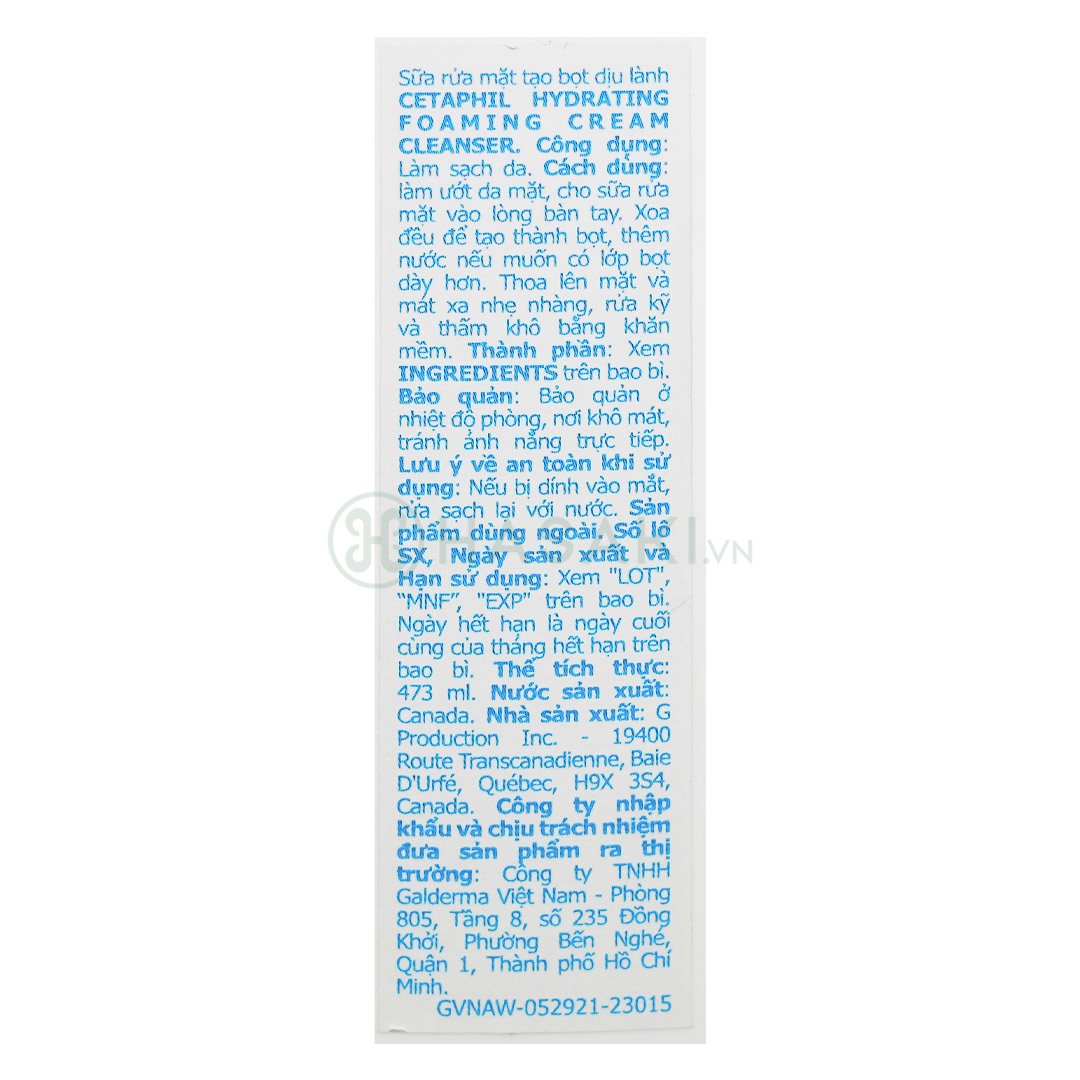 Sữa rửa mặt tạo bọt dịu lành
CETAPHIL HYDRATING
FOAMING CREAM
CLEANSER. Công dụng:
Làm sạch da. Cách dùng:
làm ướt da mặt, cho sữa rửa
mặt vào lòng bàn tay. Xoa
đều để tạo thành bọt, thêm
nước nếu muốn có lớp bọt
dày hơn. Thoa lên mặt và
mát xa nhẹ nhàng, rửa kỹ
và thấm khô bằng khăn
mềm. Thành phần: Xem
INGREDIENTS trên bao bì.
Bảo quản: Bảo quản ở
nhiệt độ phòng, nơi khô mát,
tránh ánh nắng trực tiếp.
Lưu ý về an toàn khi sử
dụng: Nếu bị dính vào mắt,
rửa sạch lại với nước. Sản
phẩm dùng ngoài. Số lô
SX, Ngày sản xuất và
Hạn sử dụng: Xem "LOT",
"MNF", "EXP" trên bao bì.
Ngày hết hạn là ngày cuối
cùng của tháng hết hạn trên
bao bì. Thể tích thực:
473 ml. Nước sản xuất:
Canada. Nhà sản xuất: G
Production Inc. - 19400
Route Transcanadienne, Baie
D'Urfé, Québec, H9X 3S4,
Canada. Công ty nhập
khẩu và chịu trách nhiệm
đưa sản phẩm ra thị
trường: Công ty TNHH
Galderma Việt Nam - Phòng
805, Tầng 8, số 235 Đồng
Khởi, Phường Bến Nghé,
Quận 1, Thành phố Hồ Chí
Minh.
GVNAW-052921-23015
HASAKI.VN